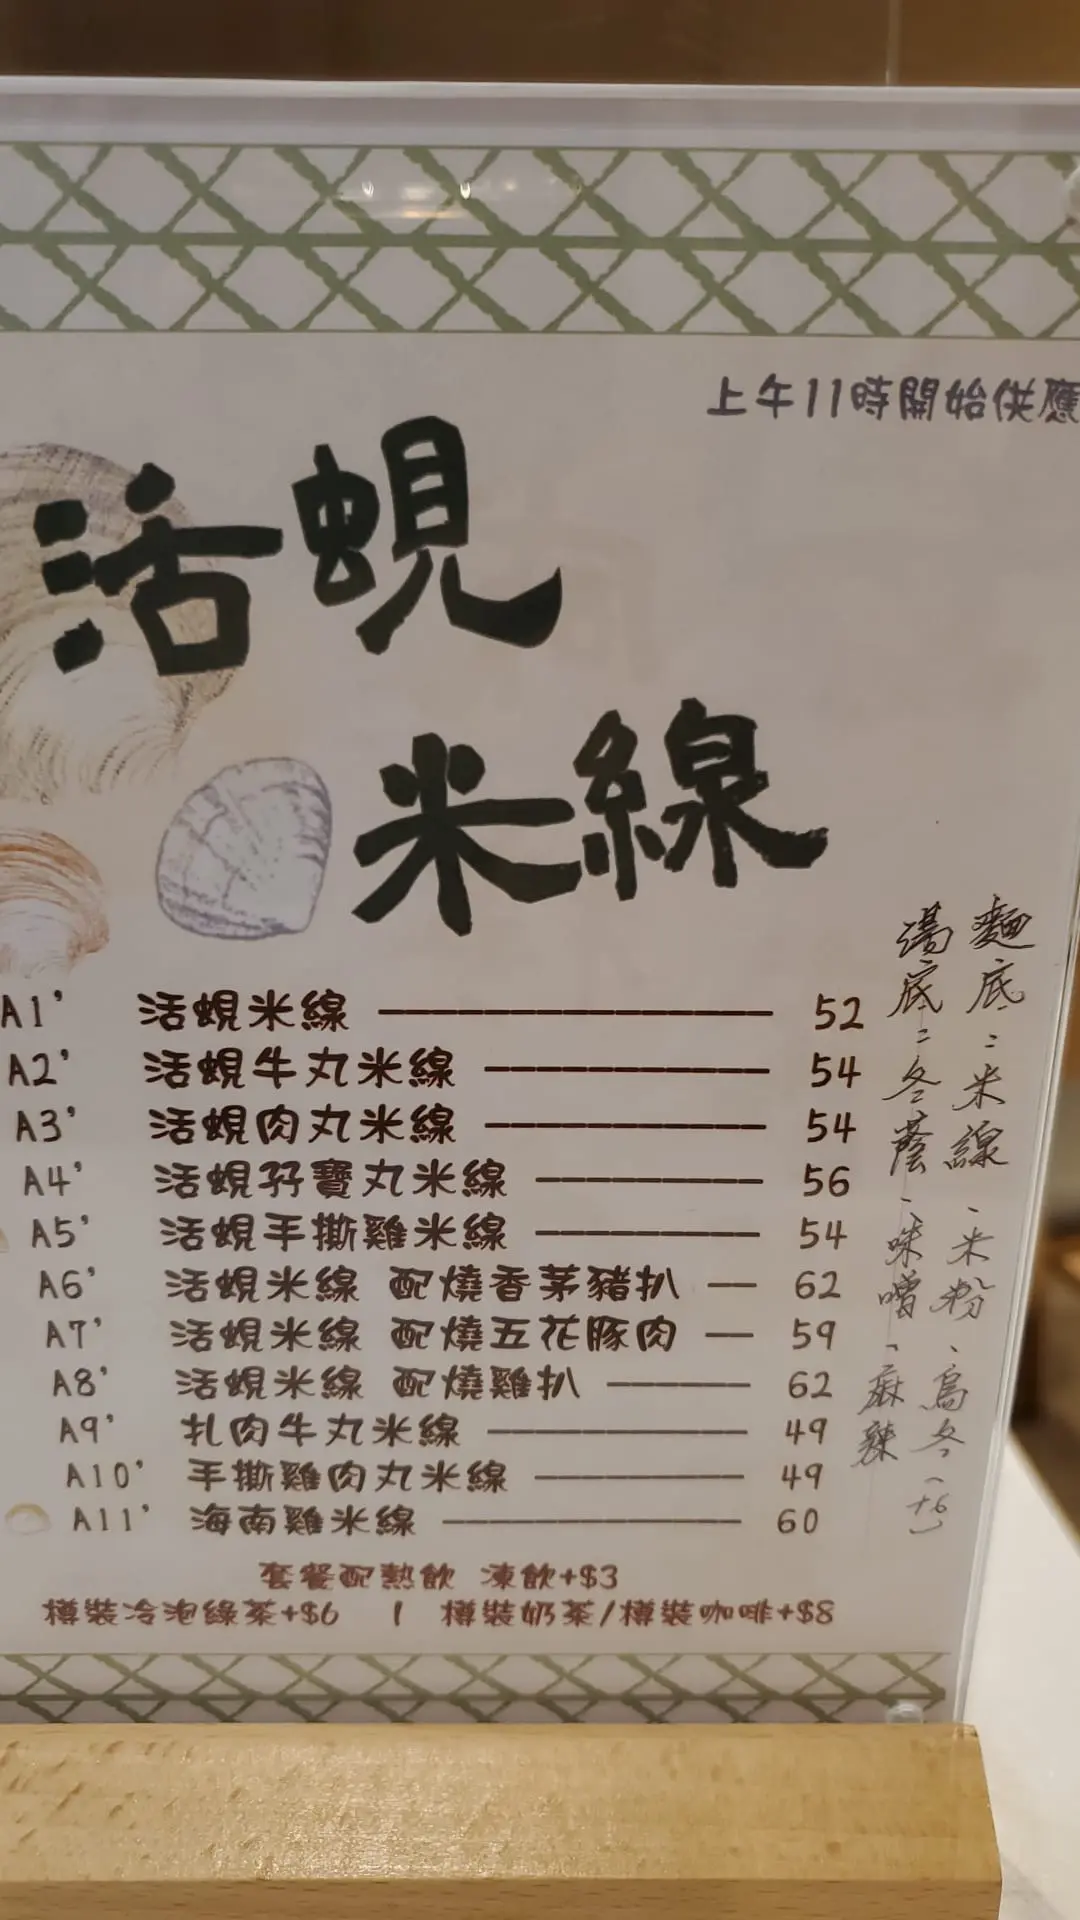 上午11時開始供應
活蜆
米線
A1' 活蜆米線 52
A2' 活蜆牛丸米線 54
A3' 活蜆肉丸米線 54
A4' 活蜆孖寶丸米線 56
A5' 活蜆手撕雞米線 54
A6' 活蜆米線 配燒香茅豬扒 62
A7' 活蜆米線 配燒五花豚肉 59
A8' 活蜆米線 配燒雞扒 62
A9' 扎肉牛丸米線 49
A10' 手撕雞肉丸米線 49
A11' 海南雞米線 60
套餐配熱飲 凍飲+$3
樽裝冷泡綠茶+$6 | 樽裝奶茶/樽裝咖啡+$8
麵底：米線、米粉、烏冬(+6)
湯底：冬蔭、味噌、麻辣